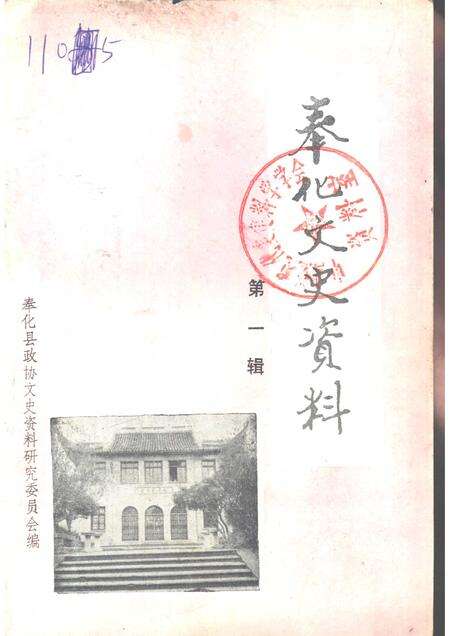 奉化文史资料
第一辑
奉化县政协文史资料研究委员会编